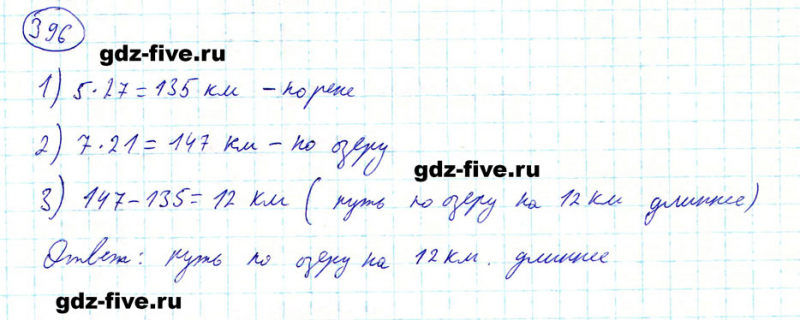 396
gdz-five.ru
1) 5·27=135 км – по реке
2) 7·21= 147 км – по озеру
gdz-five.ru
3) 147–135= 12 км ( путь по озеру на 12 км длиннее)
Ответ: путь по озеру на 12 км. длиннее
gdz-five.ru